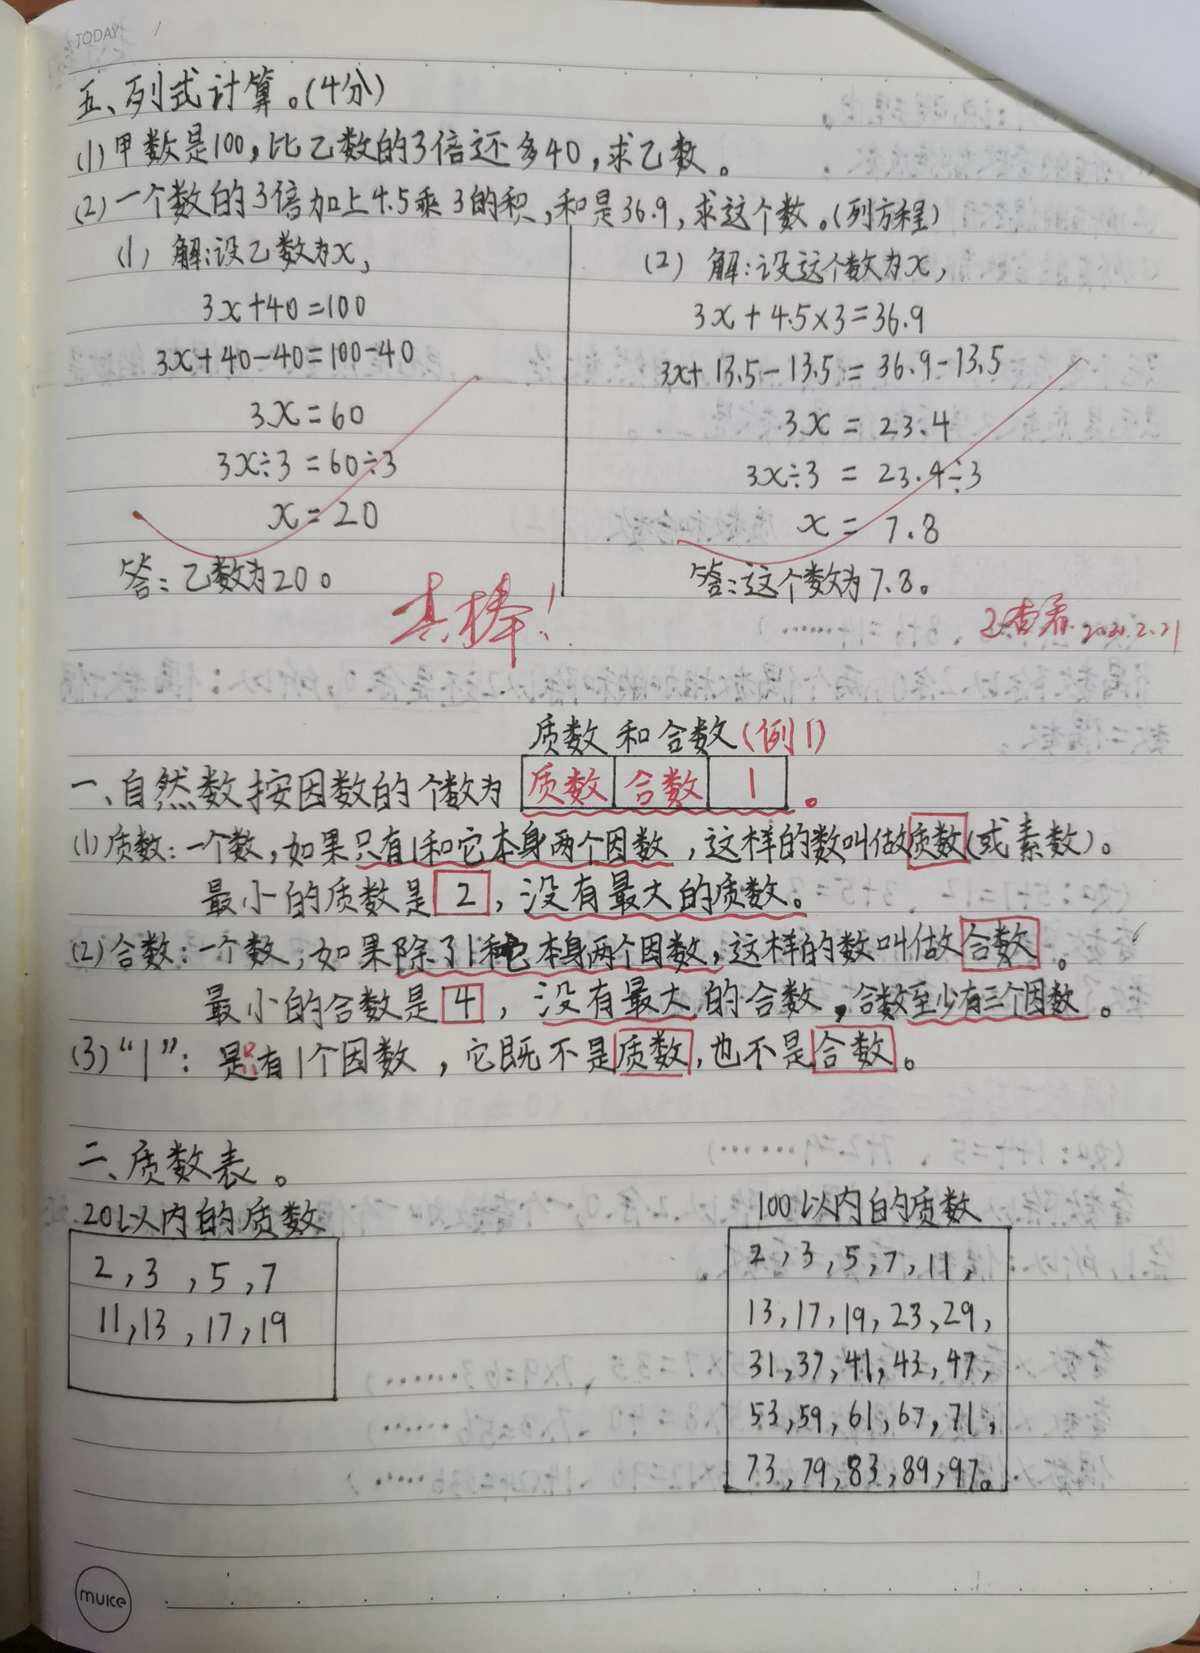 TODAY /
五、列式计算。(4分)
(1)甲数是100,比乙数的3倍还多40,求乙数。
(2)一个数的3倍加上4.5乘3的积,和是36.9,求这个数。(列方程)
(1) 解:设乙数为x,
3x+40=100
3x+40-40=100-40
3x=60
3x÷3=60÷3
x=20
答:乙数为20。
(2) 解:设这个数为x,
3x+4.5×3=36.9
3x+13.5-13.5=36.9-13.5
3x=23.4
3x÷3=23.4÷3
x=7.8
答:这个数为7.8。
真棒!
已查看 2021.2.21
质数和合数(例1)
一、自然数按因数的个数为 质数 合数 1 。
(1)质数:一个数,如果只有1和它本身两个因数,这样的数叫做质数(或素数)。
最小的质数是2,没有最大的质数。
(2)合数:一个数,如果除了1和它本身两个因数,这样的数叫做合数。
最小的合数是4,没有最大的合数,合数至少有三个因数。
(3)“1”:是只有1个因数,它既不是质数,也不是合数。
二、质数表。
20以内的质数
2,3,5,7
11,13,17,19
100以内的质数
2,3,5,7,11,
13,17,19,23,29,
31,37,41,43,47,
53,59,61,67,71,
73,79,83,89,97。
muice